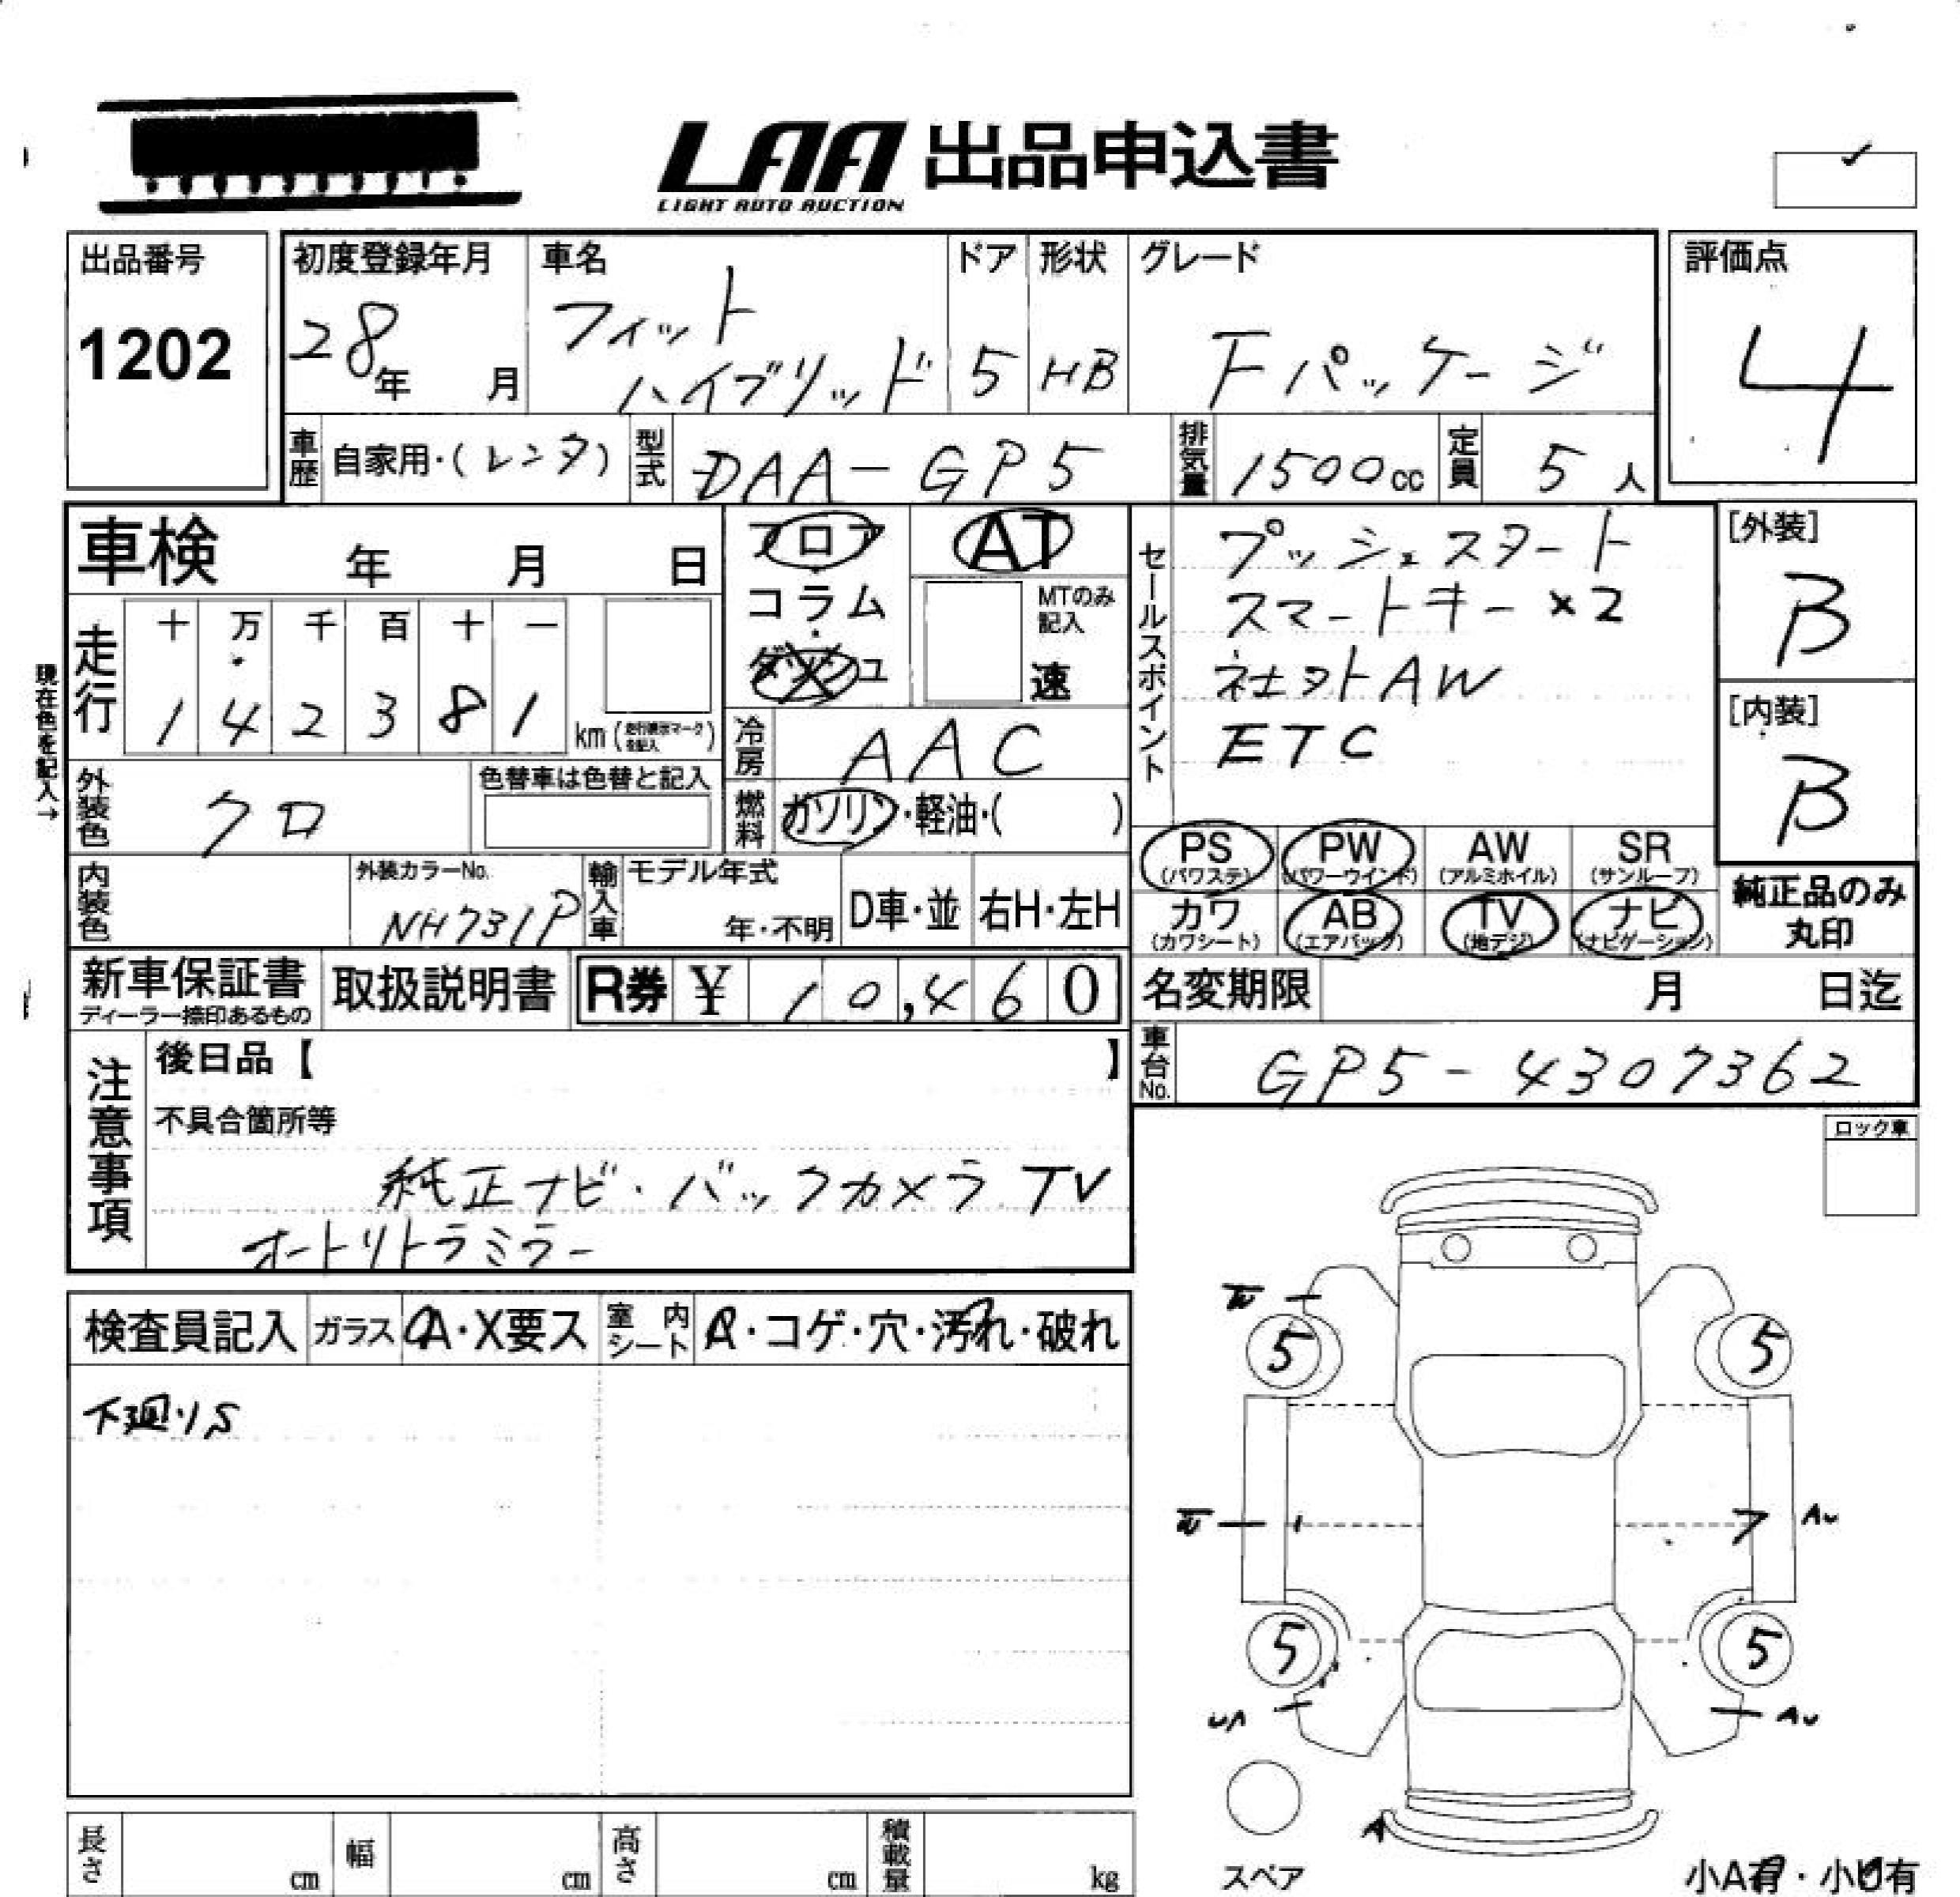 LAA 出品申込書
LIGHT AUTO AUCTION
出品番号
1202
初度登録年月
28年 月
車名
フィット
ハイブリッド
ドア
5
形状
HB
グレード
Fパッケージ
評価点
4
車歴 自家用・(レンタ)
型式 DAA-GP5
排気量 1500cc
定員 5人
車検 年 月 日
フロア
コラム
ダッシュ
AT
MTのみ
記入
速
セールスポイント
プッシュスタート
スマートキー×2
社外AW
ETC
[外装]
B
[内装]
B
現在色を記入→
走行
十 万 千 百 十 一
1 4 2 3 8 1
km (走行表示マークを記入)
冷房 AAC
燃料 ガソリン・軽油・( )
外装色 クロ
色替車は色替と記入
内装色
外装カラーNo.
NH731P
輸入車 モデル年式
年・不明
D車・並 右H・左H
PS
(パワステ)
PW
(パワーウインド)
AW
(アルミホイル)
SR
(サンルーフ)
カワ
(カワシート)
AB
(エアバック)
TV
(地デジ)
ナビ
(ナビゲーション)
純正品のみ
丸印
新車保証書
ディーラー捺印あるもの
取扱説明書
R券 ¥ 10,460
名変期限 月 日迄
車台No. GP5-4307362
注意事項
後日品【 】
不具合箇所等
純正ナビ・バックカメラ TV
オートリトラミラー
ロック車
検査員記入 ガラス A・X要ス 室内シート ・コゲ・穴・汚れ・破れ
下廻りS
5 5
1
7 AU
5 5
UA
AU
A
スペア
小A有・小U有
長さ cm 幅 cm 高さ cm 積載量 kg